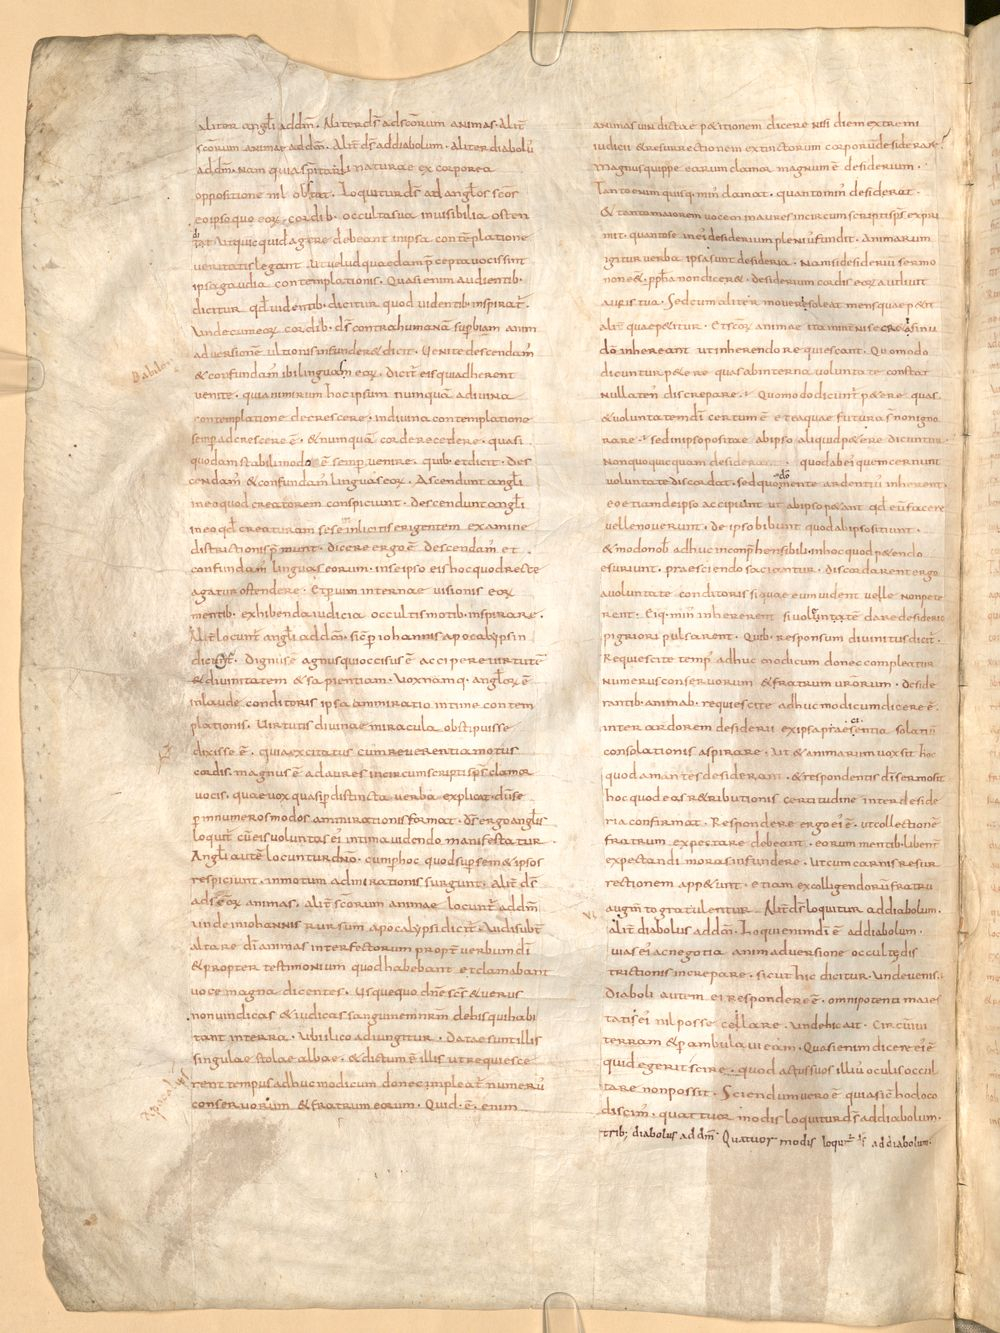 aliter angli ad dm̄. Aliter ds̄ ad scōrum animas. Alit̄
scōrum animae ad dm̄. Alit̄ ds̄ ad diabolum. aliter diabolū
ad dm̄. Nam quia spīritali naturae ex corporea
oppositione nil obstat. Loquitur ds̄ ad anglos scōs
eo ipso quo eorū cordib. occulta sua invisibilia osten
dit. Ut quicquid agere debeant in ipsa contēplatione
veritatis legant. Ut velud quaedam p̄cepta vocis sint
ipsa gaudia contemplationis. Quasi enim audientib.
dicitur qd̄ videntib. dicitur quod videntib. inspirat̄.
Unde cum eorū cordib. ds̄ contra humanā supbiam anim
adversionē ultionis infunder& dicit. Venite descendam̄
& confundam̄ ibi linguam eorū. Dicit̄ eis qui adherent
Babilo
venite. quia nimirum hoc ipsum nunquā a divina
contemplatione decrescere. in divina contemplatione
semp adcrescere ē. & numquā corde recedere. quasi
quodam stabili modo ē semp venire. quib. et dicit. Des
cendam̄ & confundam̄ linguas eorū. Ascendunt angli
in eo quod creatorem conspiciunt. Descendunt angli
in eo qd̄ creaturam sese in inlicitis erigentem examine
districtionis p̄munt. Dicere ergo ē descendam̄ et
confundam̄ linguas eorum. in se ipso eis hoc quod recte
agatur ostendere. Et p vim internae visionis eorū
mentib. exhibenda iudicia occultis motib. inspirare.
Alit̄ locunt̄ angli ad dm̄. sic p iohannis apocalypsin
dicunt̄. Dignus ē agnus qui occisus ē accipere virtutē
& divinitatem & sapientiam. Vox namq. anglorū ē
in laude conditoris ipsa ammiratio intime contem
plationis. Virtutis divinae miracula obstipuisse
dixisse ē. quia excitatus cum reverentia motus
cordis. magnus ē ad aures incircumscripti sps̄ clamor
vocis. quae vox quasi p distincta verba explicat. dū se
p innumeros modos ammirationis format. Ds̄ ergo anglis
loquit̄ cū eis voluntas ei intima videndo manifestatur.
Angli autē locuntur dnō. cum p hoc quod sup sem& ipsos
respiciunt. in motum admirationis surgunt. Alit̄ ds̄
ad scōrū animas. alit̄ scōrum animae locunt̄ ad dm̄
unde in iohannis rursum apocalypsi dicit̄. Audi subt̄
altare dī animas interfectorum propt̄ verbum dī
& propter testimonium quod habebant. et clamabant
voce magna dicentes. Usquequo dnē scs̄ & verus
non vindicas & iudicas sanguinem nrm̄ de his qui habi
tant in terra. Ubi ilico adiungitur. Datae sunt illis
singulae stolae albae. & dictum ē illis ut requiesce
rent tempus adhuc modicum donec impleat̄ numerū
conservorum & fratrum eorum. Quid. ē. enim
animas vindictae p&itionem dicere nisi diem extremi
iudicii & resurrectionem extinctorum corporū desiderare.
Magnus quippe earum clamor magnum ē desiderium.
Tanto enim quisq. min̄ clamat. quanto min̄ desiderat.
& tanto maiorem vocem in aures incircumscripti sps̄ expri
mit. quanto se in ei desiderium plenius fundit. Animarum
igitur verba ipsa sunt desideria. Nam si desideriū sermo
non e&. ppha non dicer&. desiderium cordis eorū audivit
auris tua. Sed cum aliter moveri soleat mens quae p&it
alit̄ quae p&itur. Et scōrū animae ita in intenti secr& sinu
dō inhereant ut inherendo requiescant. Quomodo
dicuntur p&ere quas ab interna voluntate constat
nullaten̄ discrepare. Quomodo dicunt̄ p&ere quas
& voluntatem dī certum ē et ea quae futura s̄ non igno
rare. sed in ipso positae ab ipso aliquid p&ere dicuntur.
Non quo quicquam desiderent quod ab ei quem cernunt
voluntate discordat. sed quo mente ardentiū inherent.
eo etiam de ipso accipiunt ut ab ipso p&ant qd̄ eū facere
velle noverunt. De ipso bibunt quod ab ipso sitiunt.
& modo nob. adhuc inconp̄hensibili. in hoc quod p&endo
esuriunt. praesciendo saciantur. Discordarent ergo
a voluntate conditoris si quae eum vident velle non pete
rent. Eiq. min̄ inherent si volentem dare desiderio
pigriori pulsarent. Quib. responsum divinitus dicit̄.
Requiescite temp̄ adhuc modicum donec compleatur
numerus conservorum & fratrum vrōrum. Deside
rantib. animab. requiescite adhuc modicum dicere ē.
inter ardorem desiderii ex ipsa praescientia solatii
consolationis aspirare. Ut & animarum vox sit hoc
quod amantes desiderant. & respondentis dī sermo sit
hoc quod eas r&ributionis certitudine inter deside
ria confirmat. Respondere ergo ei ē. ut collectionē
fratrum expectare debeant. eorum mentib. libent̄
expectandi moras infundere. Ut cum carnis resur
rectionem app&unt. etiam ex colligendorū fratrū
augm̄to gratulentur. Alit̄ ds̄ loquitur ad diabolum.
alit̄ diabolus ad dm̄. Loqui enim dī ē ad diabolum.
vias ei ac negotia animadversione occultę dis
trictionis increpare. sicut hic dicitur. Unde venis.
Diaboli autem ei respondere ē. omnipotenti maies
tati ei nil posse cęllare. Unde hic ait. Circuivi
terram & pambulavi eam. Quasi enim dicere ei ē
quid egerit scire. quod actus suos illiū oculis occul
tare non possit. Sciendum vero ē quasi ē hoc loco
discim̄. quattuor modis loquitur ds̄ ad diabolum.
trib; diabolus ad dm̄. Quatuor modis loquit̄ ds̄ ad diabolum.